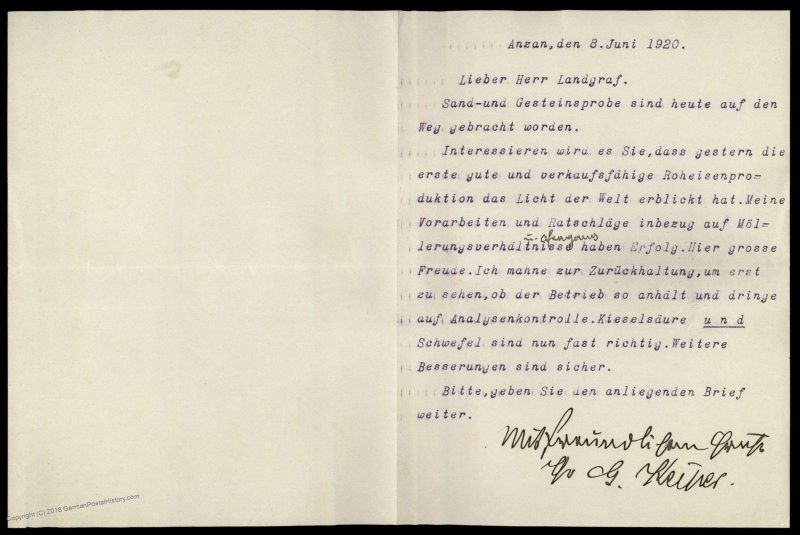 Anzan,den 8.Juni 1920.
Lieber Herr Landgraf.
Sand-und Gesteinsprobe sind heute auf den
Weg gebracht worden.
Interessieren wird es Sie,dass gestern die
erste gute und verkaufsfähige Roheisenpro=
duktion das Licht der Welt erblickt hat.Meine
Vorarbeiten und Ratschläge inbezug auf Möl=
u.
lerungsverhältnisse haben Erfolg.Hier grosse
Freude.Ich mahne zur Zurückhaltung,um erst
zu sehen,ob der Betrieb so anhält und dringe
auf Analysenkontrolle.Kieselsäure u n d
Schwefel sind nun fast richtig.Weitere
Besserungen sind sicher.
Bitte,geben Sie den anliegenden Brief
weiter.
Mit freundlichem Gruß
Ihr G. Keiper.
Copyright (C) 2018 GermanPostalHistory.com